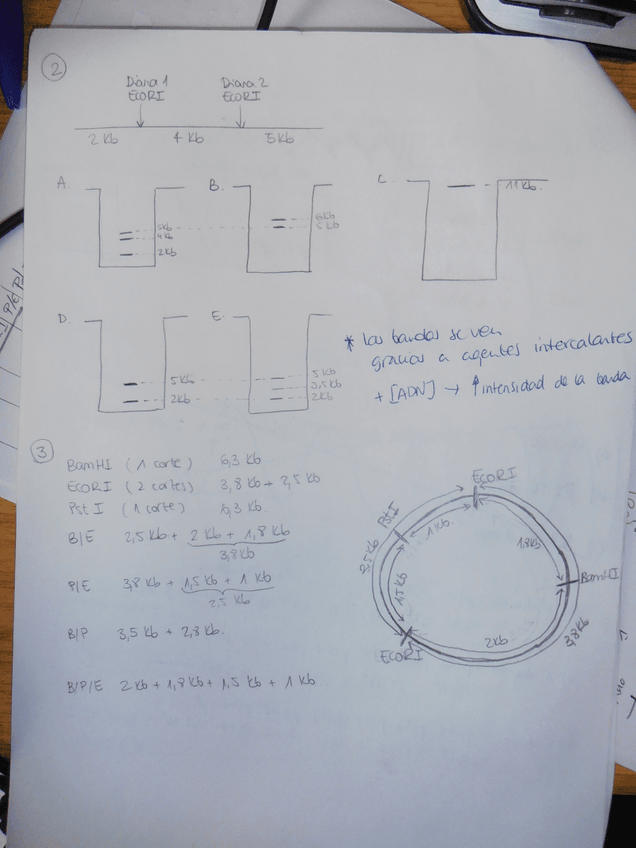 2
Diana 1 Diana 2
ECORI ECORI
2 Kb 4 Kb 5 Kb
A. B. C.
11 Kb.
5Kb 6Kb
4Kb 5Kb
2Kb
D. E.
5Kb 5Kb
3,5Kb
2Kb 2Kb
* Las bandas se ven
gracias a agentes intercalantes
+ [ADN] → ↑ intensidad de la banda
3
BamHI (1 corte) 6,3 Kb
ECORI (2 cortes) 3,8 Kb + 2,5 Kb
Pst I (1 corte) 6,3 Kb.
B/E 2,5 Kb + 2 Kb + 1,8 Kb
3,8Kb
P/E 3,8 Kb + 1,5 Kb + 1 Kb
2,5 Kb
B/P 3,5 Kb + 2,8 Kb.
B/P/E 2 Kb + 1,8 Kb + 1,5 Kb + 1 Kb
ECORI
PstI
1 Kb.
1,8Kb
2,5 Kb
1,5 Kb
BamHI
2Kb
3,8 Kb
ECORI